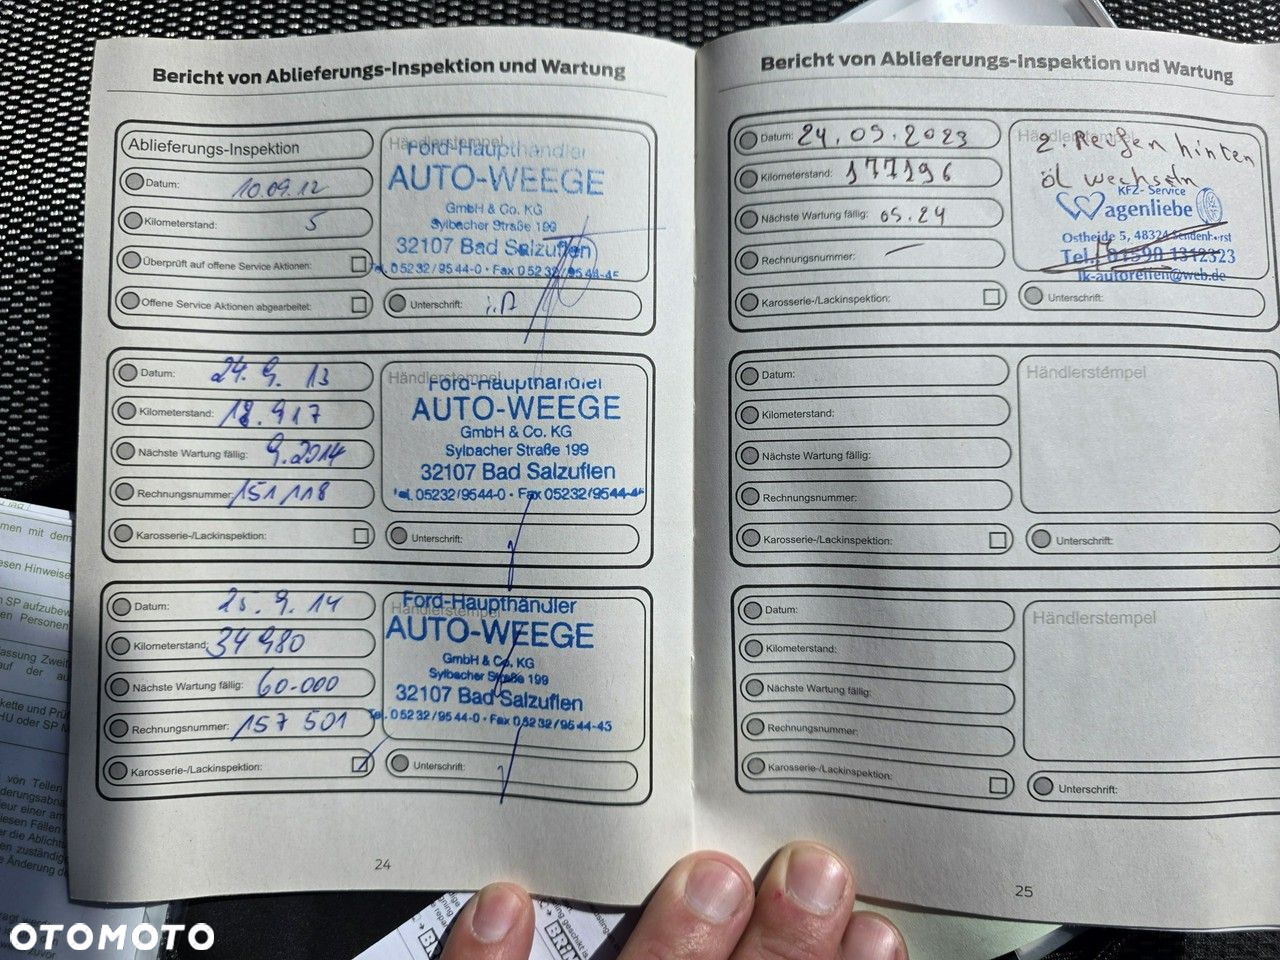 Bericht von Ablieferungs-Inspektion und Wartung
Ablieferungs-Inspektion
Datum: 10.09.12
Kilometerstand: 5
Überprüft auf offene Service Aktionen:
Offene Service Aktionen abgearbeitet:
Händlerstempel
Ford-Haupthändler
AUTO-WEEGE
GmbH & Co. KG
Sylbacher Straße 199
32107 Bad Salzuflen
Tel. 05232/9544-0 · Fax 05232/9544-45
Unterschrift: i.A
Datum: 24. 9. 13
Kilometerstand: 18.917
Nächste Wartung fällig: 9.2014
Rechnungsnummer: 151118
Karosserie-/Lackinspektion:
Händlerstempel
Ford-Haupthändler
AUTO-WEEGE
GmbH & Co. KG
Sylbacher Straße 199
32107 Bad Salzuflen
Tel. 05232/9544-0 · Fax 05232/9544-45
Unterschrift:
Datum: 25. 9. 14
Kilometerstand: 34980
Nächste Wartung fällig: 60.000
Rechnungsnummer: 157 501
Karosserie-/Lackinspektion:
Händlerstempel
Ford-Haupthändler
AUTO-WEEGE
GmbH & Co. KG
Sylbacher Straße 199
32107 Bad Salzuflen
Tel. 05232/9544-0 · Fax 05232/9544-45
Unterschrift:
24
Bericht von Ablieferungs-Inspektion und Wartung
Datum: 24.05.2023
Kilometerstand: 177196
Nächste Wartung fällig: 05.24
Rechnungsnummer: –
Karosserie-/Lackinspektion:
Händlerstempel
2. Reifen hinten
öl wechseln
KFZ-Service
Wagenliebe
Ostheide 5, 48324 Sendenhorst
Tel. 01590 1312323
lk-autoreifen@web.de
Unterschrift:
Datum:
Kilometerstand:
Nächste Wartung fällig:
Rechnungsnummer:
Karosserie-/Lackinspektion:
Händlerstempel
Unterschrift:
Datum:
Kilometerstand:
Nächste Wartung fällig:
Rechnungsnummer:
Karosserie-/Lackinspektion:
Händlerstempel
Unterschrift:
25
men mit dem
esen Hinweise
SP aufzubew
en Personen
assung Zweit
auf der au
kette und Prü
HU oder SP M
von Teilen
iesen Fällen
er die Ablicht
en zuständig
e Änderung d
OTOMOTO